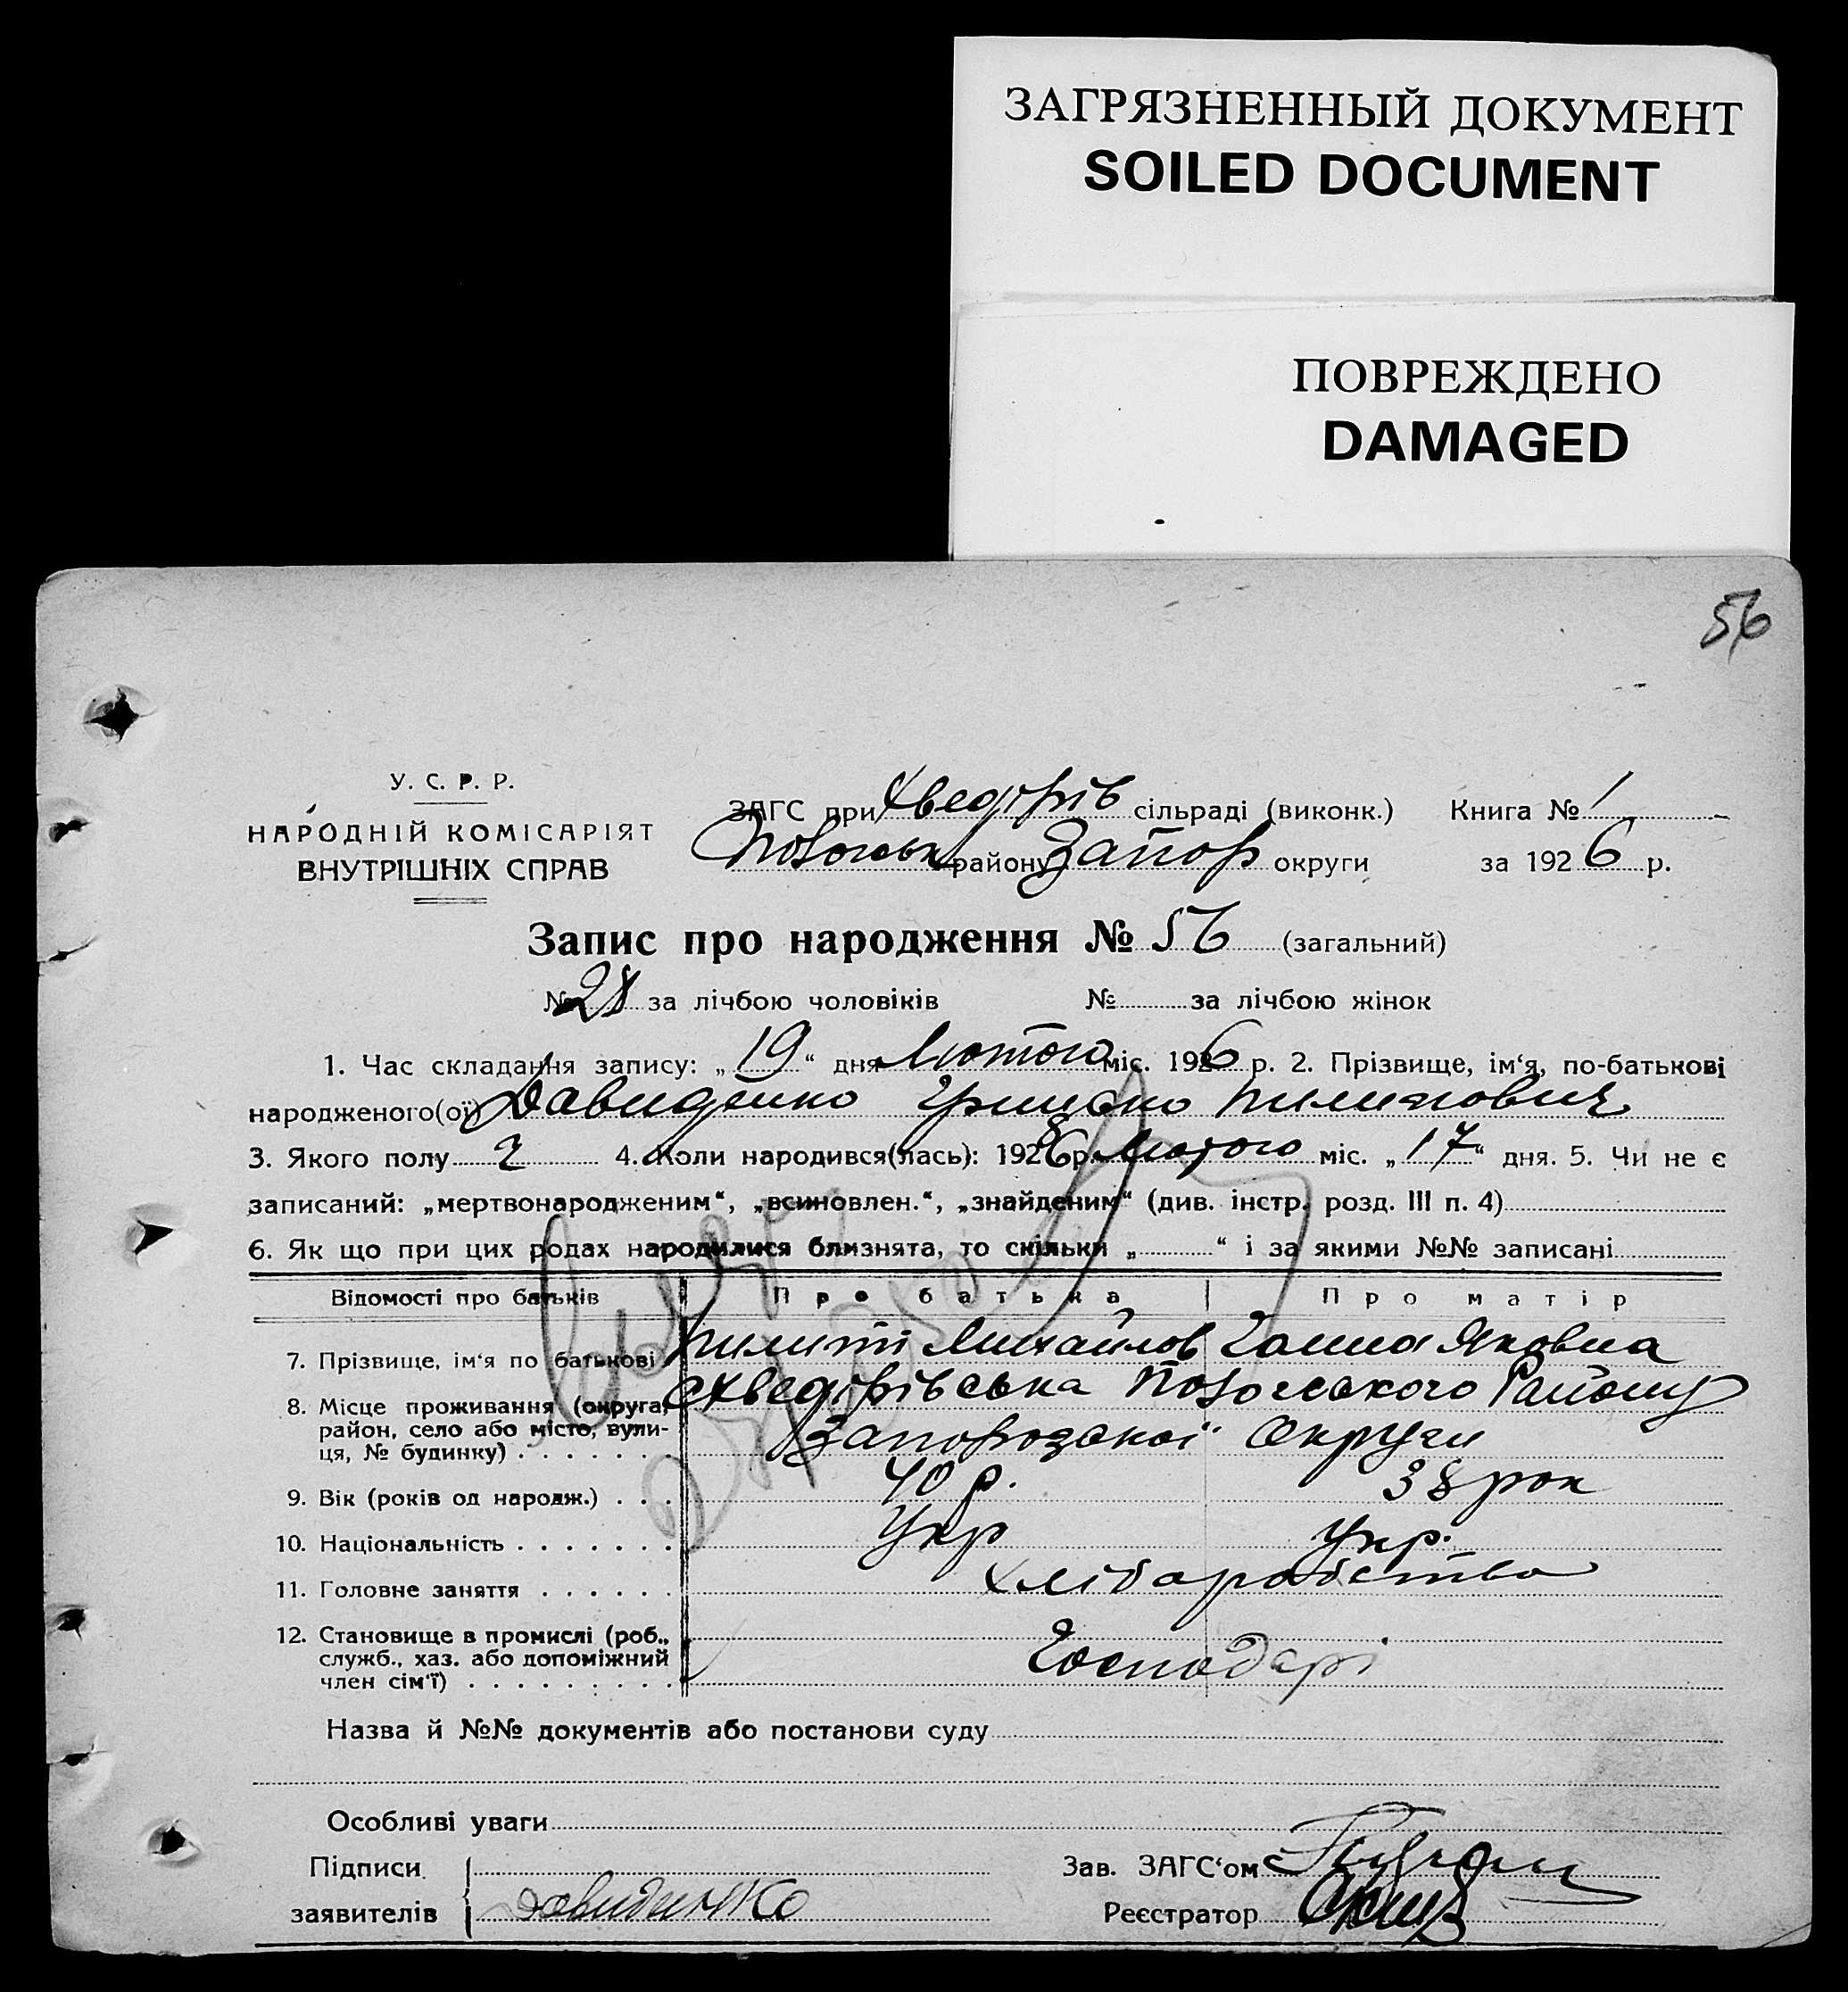 ЗАГРЯЗНЕННЫЙ ДОКУМЕНТ
SOILED DOCUMENT
ПОВРЕЖДЕНО
DAMAGED
56
У. С. Р. Р.
НАРОДНІЙ КОМІСАРІЯТ
ВНУТРІШНІХ СПРАВ
ЗАГС при Хведорів сільраді (виконк.) Книга № 1
району Запор округи за 1926 р.
Запис про народження № 56 (загальний)
№ 28 за лічбою чоловіків № за лічбою жінок
1. Час складання запису: „ 19 “ дня Лютого міс. 1926 р. 2. Прізвище, ім‘я, по-батькові
народженого(ої) Давиденко Грицько Пилипович
3. Якого полу ч 4. Коли народився(лась): 1926 р. Лютого міс. „ 17 “ дня. 5. Чи не є
записаний: „мертвонародженим“, „всиновлен.“, „знайденим“ (див. інстр. розд. III п. 4)
6. Як що при цих родах народилися близнята, то скільки „ “ і за якими №№ записані
Відомості про батьків Про батька Про матір
7. Прізвище, ім‘я по батькові Пилип Михайлов Ганна Яковна
8. Місце проживання (округа, Хведорівська Району
район, село або місто, вули- Запорозської Округи
ця, № будинку)
9. Вік (років од народж.) 40 р. 38 рок
10. Національність Укр Укр.
11. Головне заняття Хліборобство
12. Становище в промислі (роб.,
служб., хаз. або допоміжний Господарі
член сім‘ї)
Назва й №№ документів або постанови суду
Особливі уваги
Підписи Зав. ЗАГС‘ом
заявителів Давиденко Реєстратор